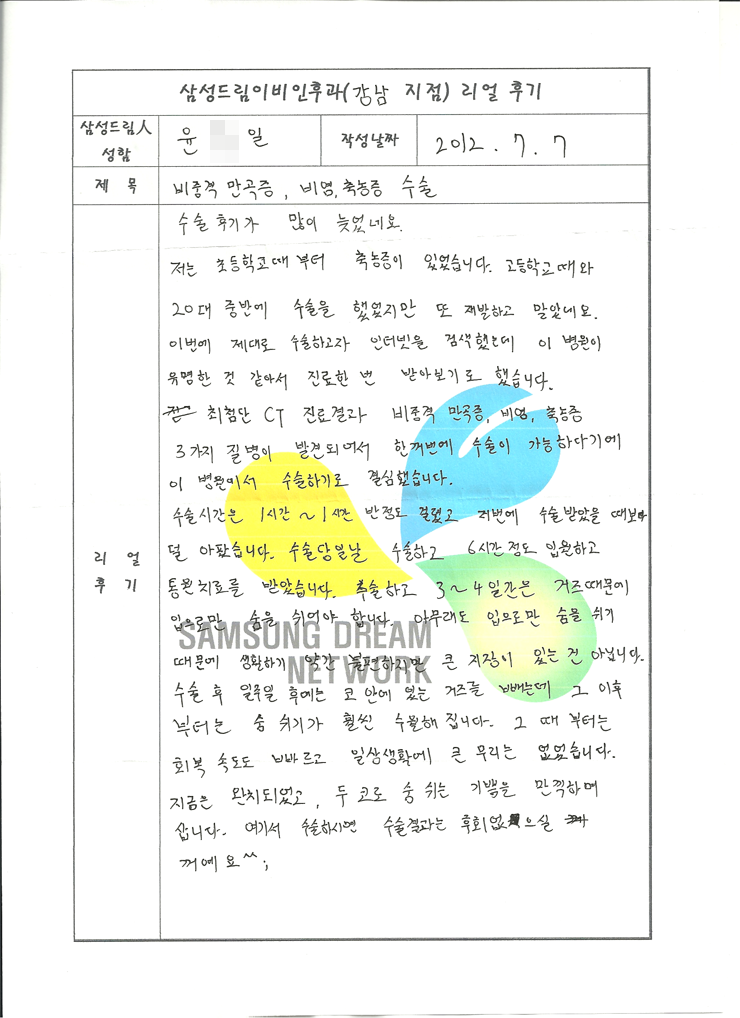 삼성드림이비인후과(강남 지점) 리얼 후기
삼성드림人 성함
윤 일
작성날짜
2012. 7. 7
제 목
비중격 만곡증, 비염, 축농증 수술
리 얼 후 기
수술 후기가 많이 늦었네요.
저는 초등학교때 부터 축농증이 있었습니다. 고등학교 때와
20대 중반에 수술을 했었지만 또 재발하고 말았네요.
이번에 제대로 수술하고자 인터넷을 검색했는데 이 병원이
유명한 것 같아서 진료한 번 받아보기로 했습니다.
최첨단 CT 진료결과 비중격 만곡증, 비염, 축농증
3가지 질병이 발견되어서 한꺼번에 수술이 가능하다기에
이 병원에서 수술하기로 결심했습니다.
수술시간은 1시간~1시간 반정도 걸렸고 저번에 수술받았을 때보다
덜 아팠습니다. 수술당일날 수술하고 6시간정도 입원하고
통원치료를 받았습니다. 수술하고 3~4일간은 거즈때문에
입으로만 숨을 쉬어야 합니다. 아무래도 입으로만 숨을 쉬기
때문에 생활하기 약간 불편하지만 큰 지장이 있는 건 아닙니다.
수술 후 일주일 후에는 코 안에 있는 거즈를 빼는데 그 이후
부터는 숨 쉬기가 훨씬 수월해 집니다. 그 때 부터는
회복 속도도 빠르고 일상생활에 큰 무리는 없었습니다.
지금은 완치되었고, 두 코로 숨 쉬는 기쁨을 만끽하며
삽니다. 여기서 수술하시면 수술결과는 후회없으실
꺼예요^^;
SAMSUNG DREAM
NETWORK